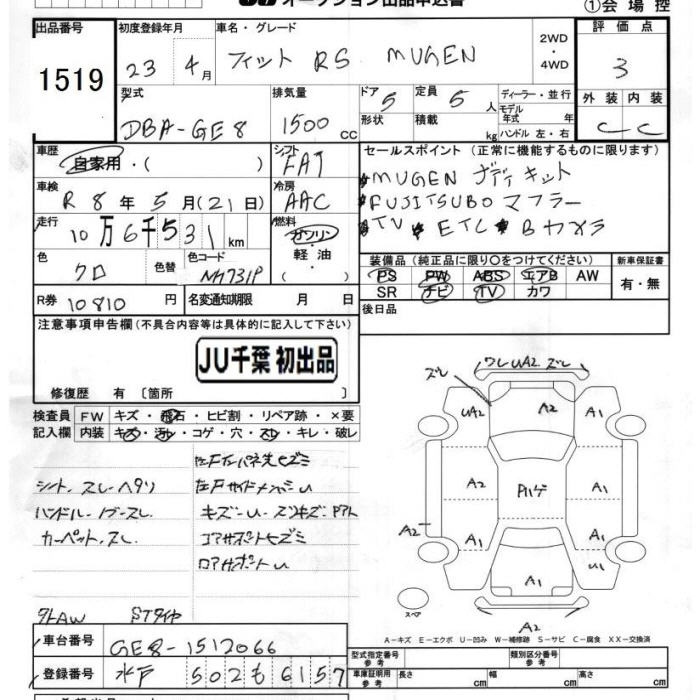 オークション出品申込書
①会場控
出品番号
1519
初度登録年月
23年4月
車名・グレード
フィット RS MUGEN
2WD
・
4WD
評価点
3
外装 内装
C C
型式
DBA-GE8
排気量
1500 cc
ドア 5
形状
定員 5 人
積載 kg
ディーラー・並行
モデル
年式 年
ハンドル 左・右
車歴
自家用・( )
シフト
FAT
セールスポイント (正常に機能するものに限ります)
MUGEN ボディキット
FUJITSUBO マフラー
TV ETC Bカメラ
車検
R8年5月(21日)
冷房
AAC
走行
10万6千531km
燃料
ガソリン
軽油
・
( )
色
クロ
色替
色コード
NH731P
装備品 (純正品に限り○をつけてください)
新車保証書
PS PW ABS エアB AW
SR ナビ TV カワ
有・無
R券 10810円
名変通知期限 月 日
後日品
注意事項申告欄(不具合内容等は具体的に記入して下さい)
JU千葉 初出品
修復歴 有 〔箇所 〕
検査員
記入欄
FW キズ・飛石・ヒビ割・リペア跡・×要
内装 キズ・汚れ・コゲ・穴・スレ・キレ・破レ
シート、スレ・ヘタリ
ハンドル・ノブ・スレ
カーペット、スレ
左Fインパネ先ヒズミ
左Fサイドメンバーu
キズ・u
コアサポートヒズミ
ロアサポートu
STタイヤ
ズレ
ワレUA2ズレ
UA2
A2
A1
A2
A1
Pハゲ
A1
A1
A1
A1
U1
A2
スペア
A－キズ E－エクボ U－凹み W－補修跡 S－サビ C－腐食 XX－交換済
車台番号
GE8-1512066
登録番号
水戸 502 も 6157
型式指定番号
参考
類別区分番号
参考
車庫証明用
参考
長さ cm
幅 cm
高さ cm